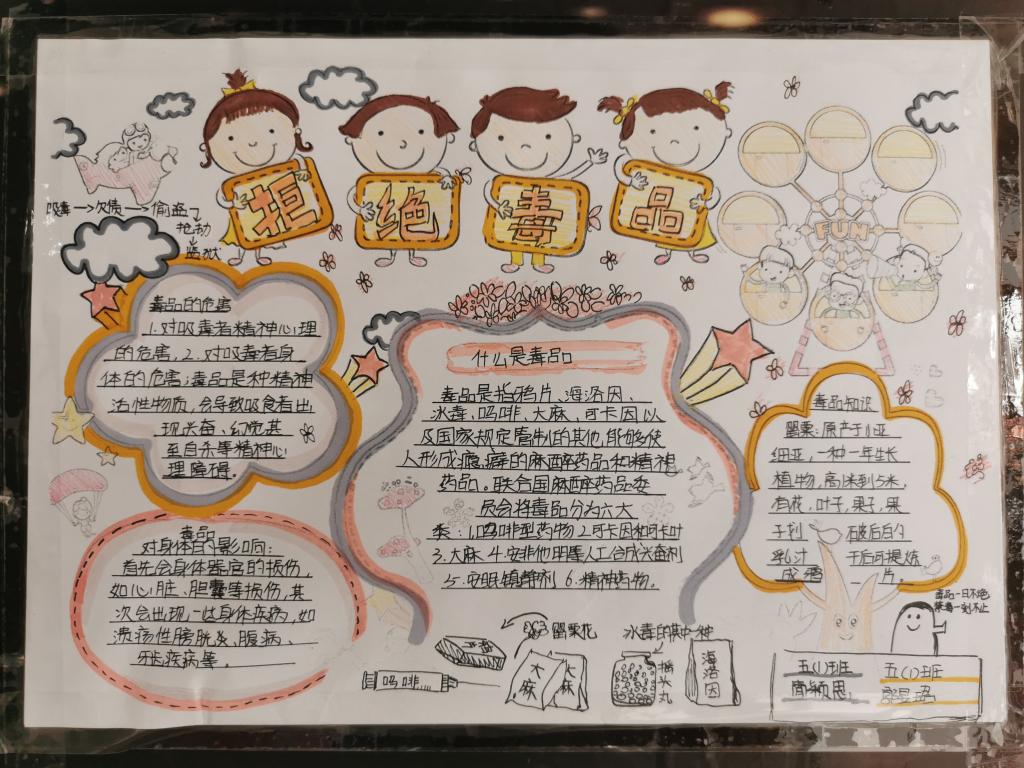 拒绝毒品
FUN
吸毒→欠债→偷盗
抢劫
监狱
毒品的危害
1.对吸毒者精神心理
的危害,2.对吸毒者身
体的危害;毒品是种精神
活性物质,会导致吸食者出
现兴奋、幻觉甚
至自杀等精神心
理障碍.
什么是毒品
毒品是指鸦片、海洛因、
冰毒、吗啡、大麻、可卡因以
及国家规定管制的其他,能够使
人形成瘾癖的麻醉药品和精神
药品。联合国麻醉药品委
员会将毒品分为六大
类:1.吗啡型药物 2.可卡因和可卡叶
3.大麻 4.安非他明等人工合成兴奋剂
5.安眠镇静剂 6.精神药物.
毒品知识
罂粟:原产于小亚
细亚,一种一年生长
植物,高1米到1.5米,
有花,叶子,果子,果
子割破后白的
乳汁干后可提炼
成 片.
毒品
对身体的影响:
首先会身体器官的损伤,
如心脏、胆囊等损伤,其
次会出现,一些身体疾病,如
溃疡性膀胱炎、腹病、
牙科疾病等.
毒品一日不绝
禁毒一刻不止
罂粟花
冰毒的其中一种
吗啡
大麻
大麻
摇头丸
海洛因
五(1)班
五(1)班